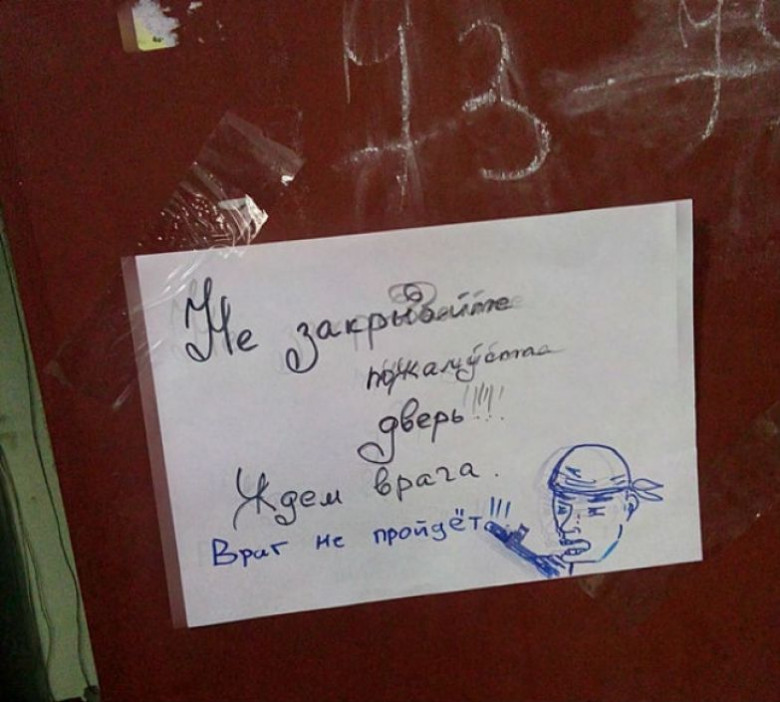 43
Не закрывайте
пожалуйста
дверь!!!!
Ждем врага.
Враг не пройдёт!!!